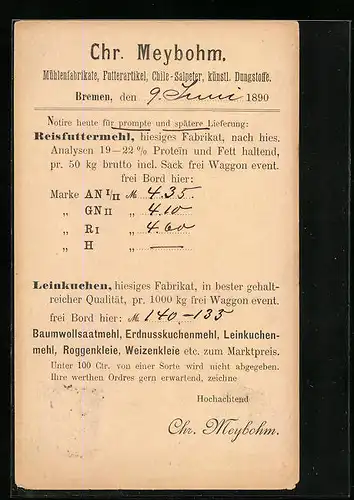 Chr. Meybohm.
Mühlenfabrikate, Futterartikel, Chile-Salpeter, künstl. Dungstoffe.
Bremen, den 9. Juni 1890
Notire heute für prompte und spätere Lieferung:
Reisfuttermehl, hiesiges Fabrikat, nach hies.
Analysen 19—22 % Proteïn und Fett haltend,
pr. 50 kg brutto incl. Sack frei Waggon event.
frei Bord hier:
Marke AN I/II M 4.35
„ GN II „ 4.10
„ R I „ 4.60
„ H „ —
Leinkuchen, hiesiges Fabrikat, in bester gehalt-
reicher Qualität, pr. 1000 kg frei Waggon event.
frei Bord hier: M 140-135
Baumwollsaatmehl, Erdnusskuchenmehl, Leinkuchen-
mehl, Roggenkleie, Weizenkleie etc. zum Marktpreis.
Unter 100 Ctr. von einer Sorte wird nicht abgegeben.
Ihre werthen Ordres gern erwartend, zeichne
Hochachtend
Chr. Meybohm.